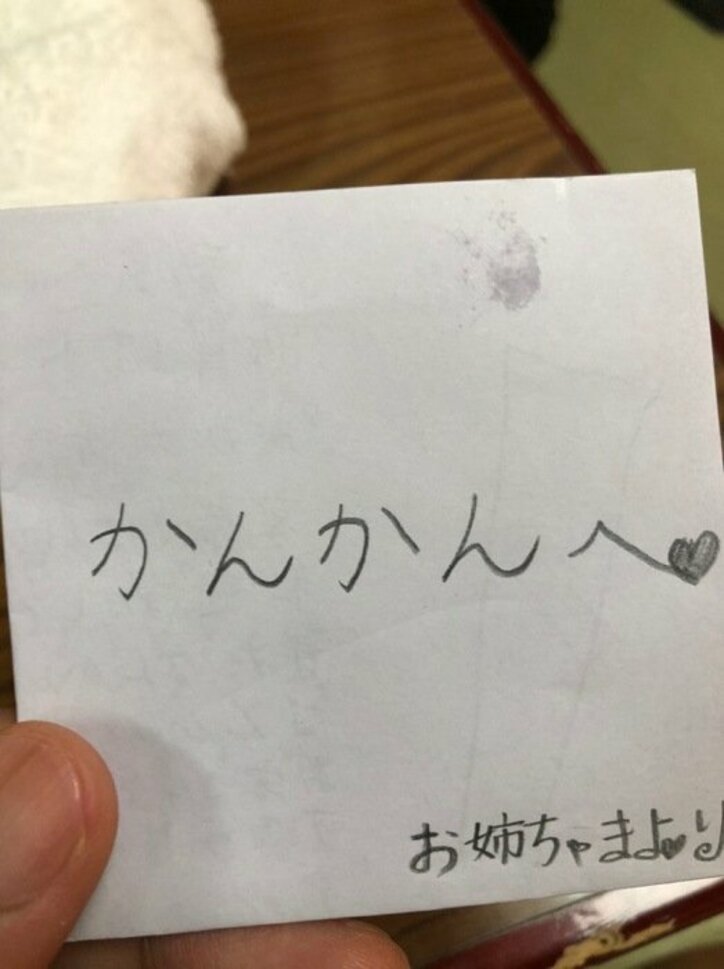 かんかんへ♥
お姉ちゃまより